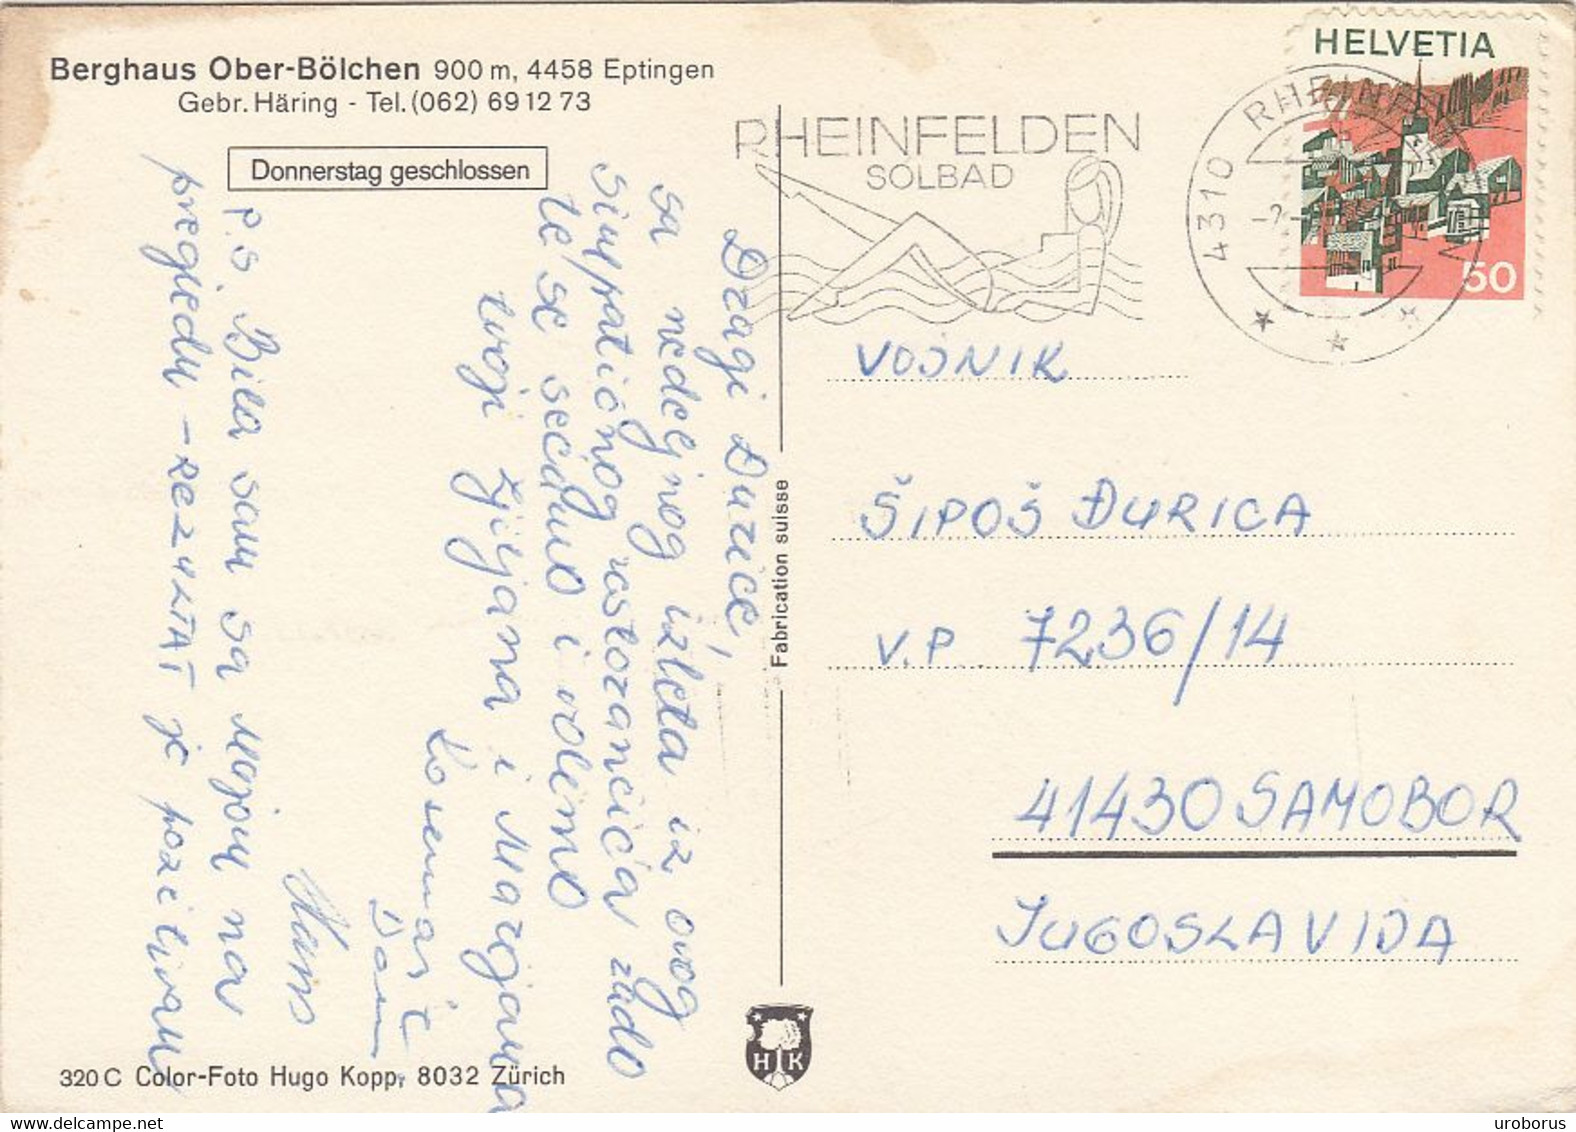 Berghaus Ober-Bölchen 900 m, 4458 Eptingen
Gebr. Häring - Tel. (062) 69 12 73
Donnerstag geschlossen
Dragi Đurice,
sa nedeljnog izleta iz ovog
simpatičnog restorančića rado
te se sećamo i volimo
tvoji Ljiljana i Marojana
P.S. Bila sam sa Majom na
pregledu - REZULTAT je pozitivan
Hans
Fabrication suisse
HK
320 C Color-Foto Hugo Kopp, 8032 Zürich
RHEINFELDEN
SOLBAD
4310 RHEINF
HELVETIA
50
VOJNIK
ŠIPOŠ ĐURICA
V.P. 7236/14
41430 SAMOBOR
JUGOSLAVIJA
uroborus